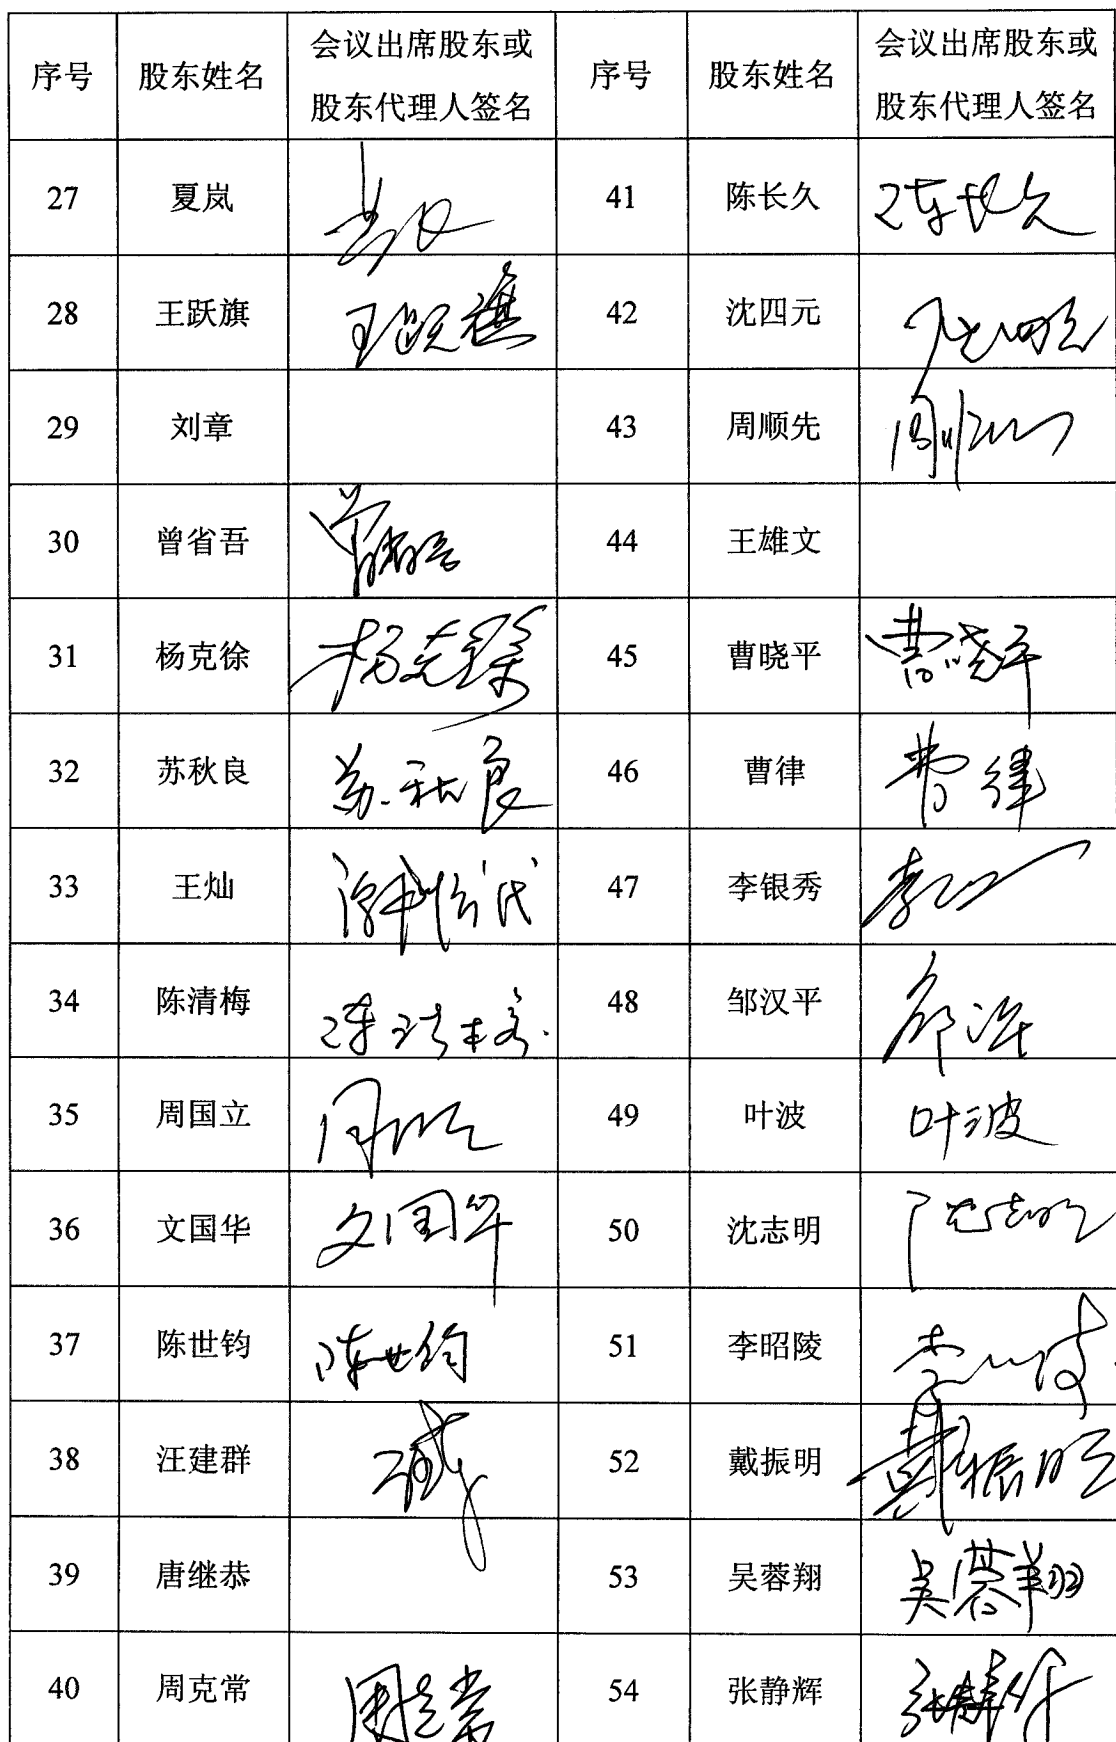 序号 股东姓名 会议出席股东或 序号 股东姓名 会议出席股东或
股东代理人签名 股东代理人签名
27 夏岚 41 陈长久 陈长久
28 王跃旗 王跃旗 42 沈四元 沈四元
29 刘章 43 周顺先
30 曾省吾 曾省吾 44 王雄文
31 杨克徐 杨克徐 45 曹晓平 曹晓平
32 苏秋良 苏秋良 46 曹律 曹律
33 王灿 47 李银秀
34 陈清梅 陈清梅 48 邹汉平
35 周国立 49 叶波 叶波
36 文国华 文国华 50 沈志明 沈志明
37 陈世钧 陈世钧 51 李昭陵
38 汪建群 52 戴振明 戴振明
39 唐继恭 53 吴蓉翔 吴蓉翔
40 周克常 周克常 54 张静辉 张静辉